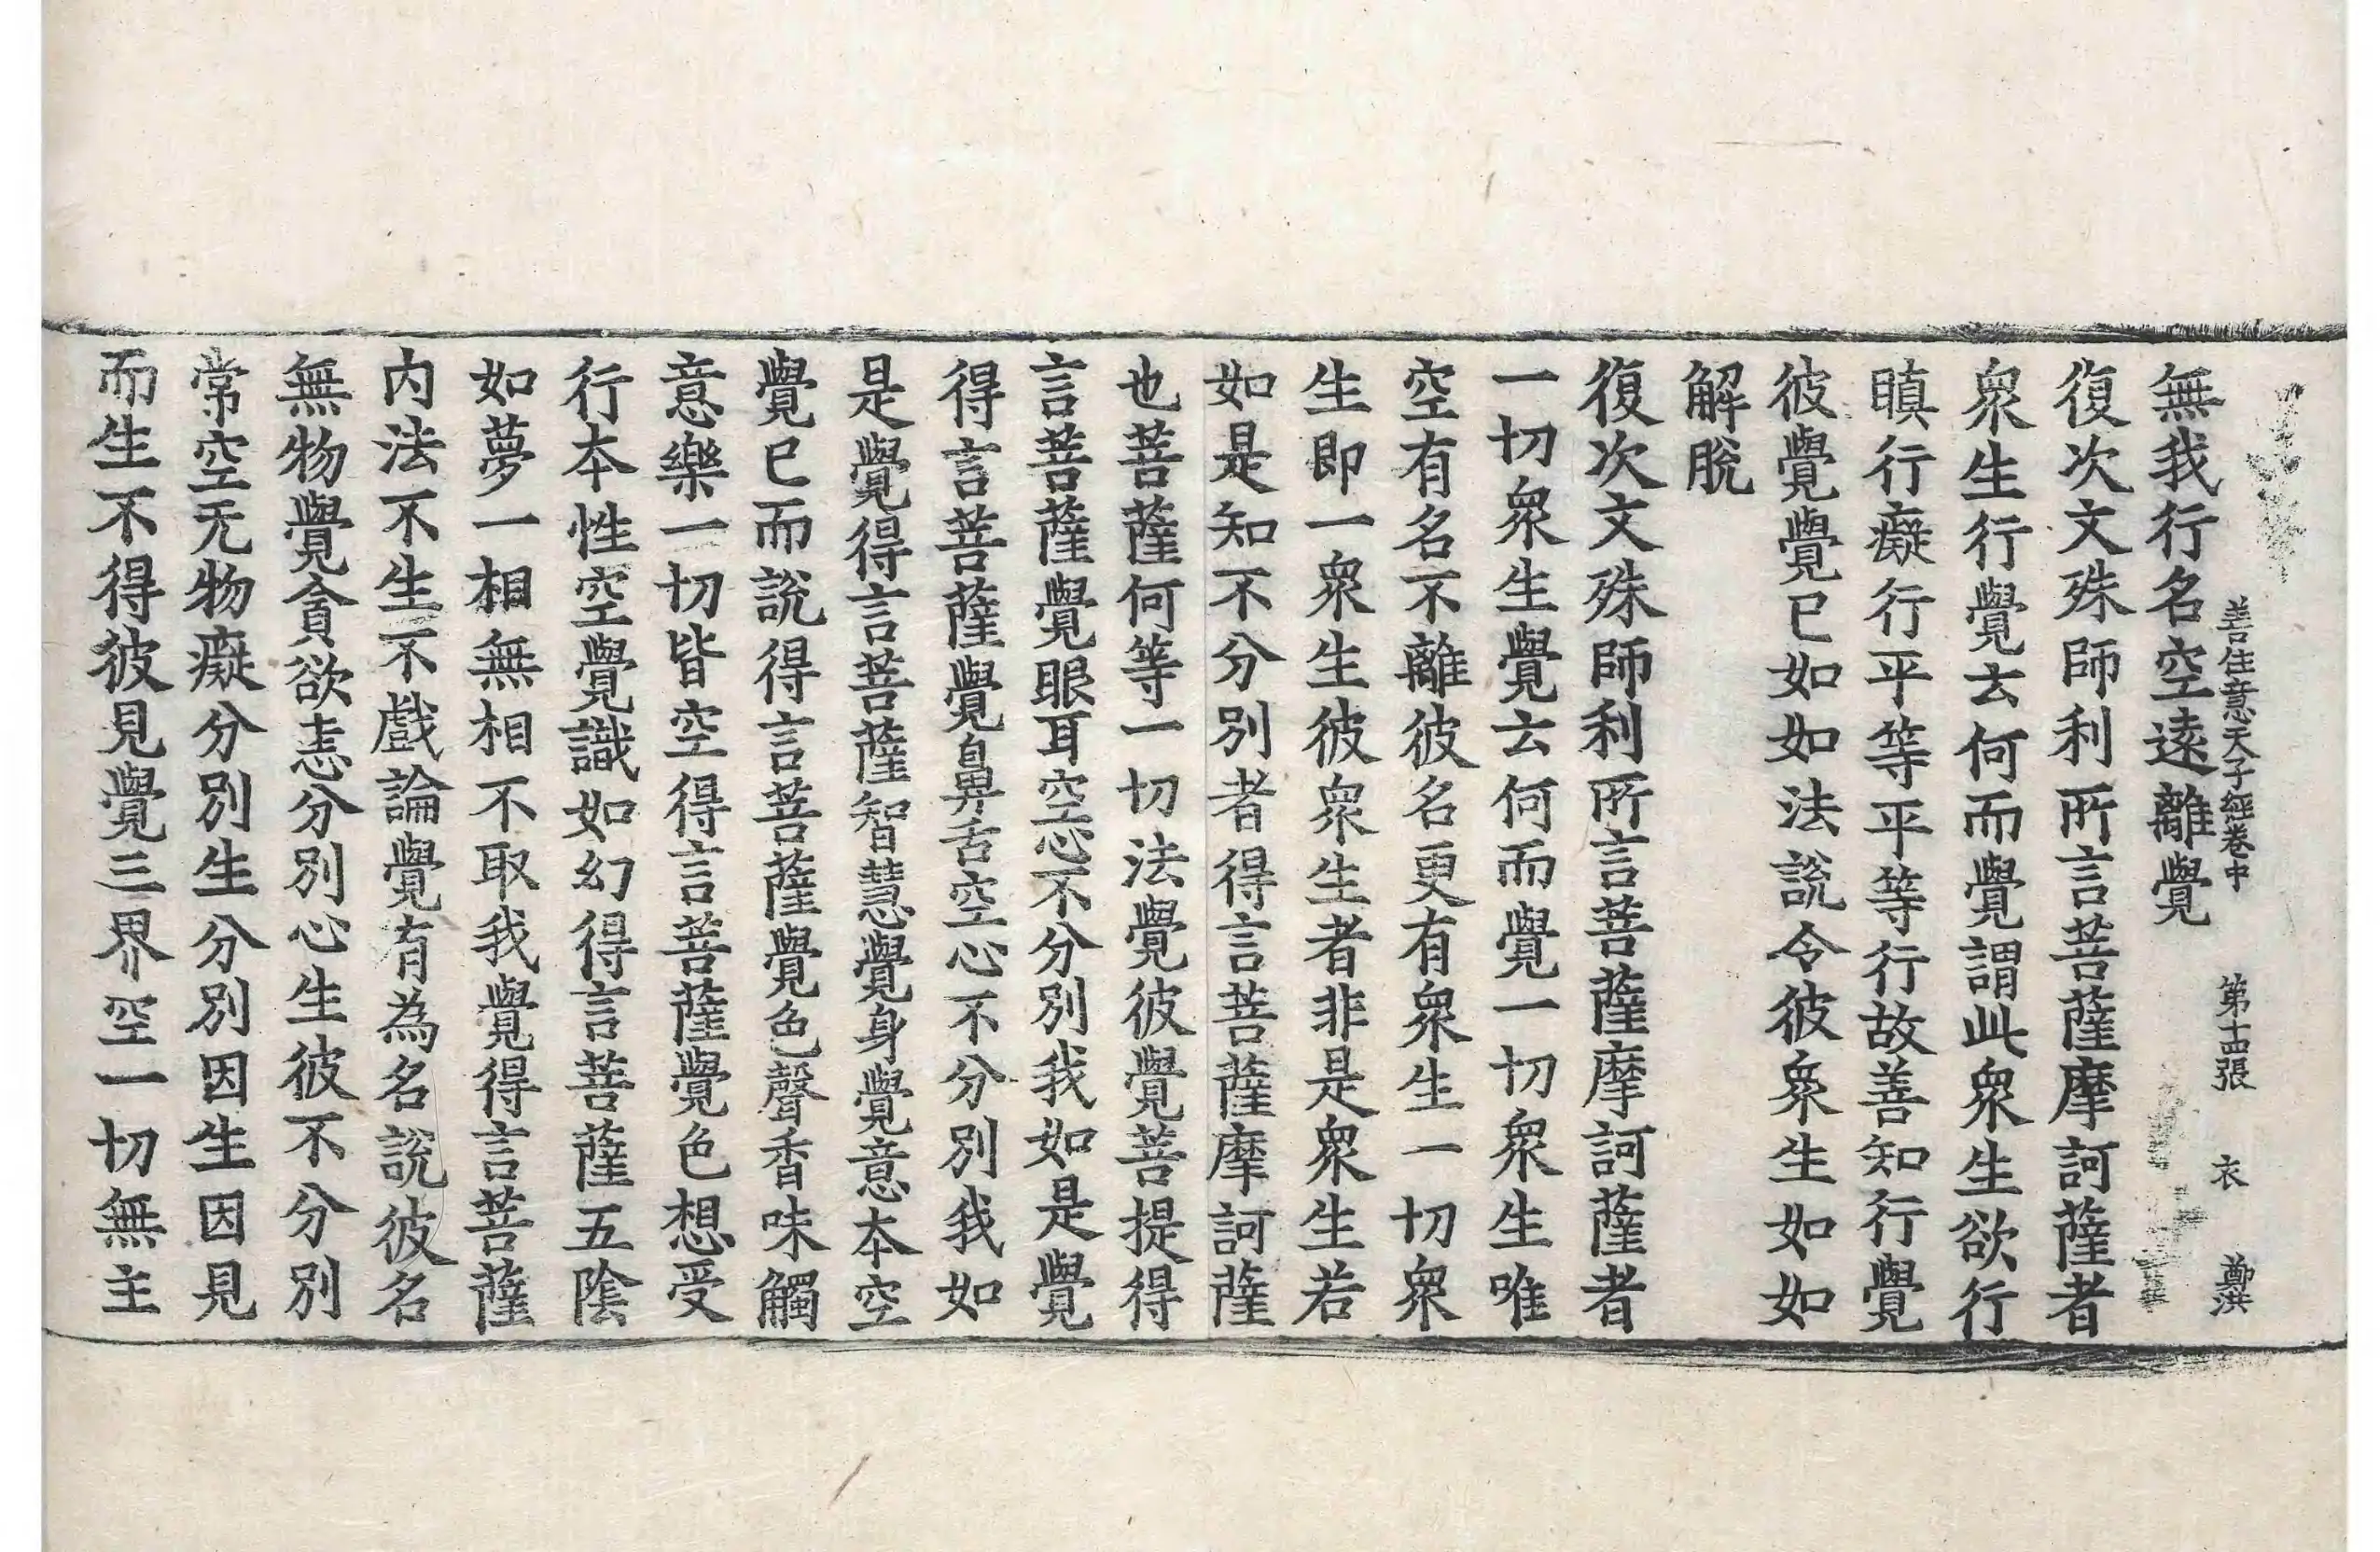 善住意天子經卷中 第十四張 衣
無我行名空遠離覺
復次文殊師利所言菩薩摩訶薩者
衆生行覺去何而覺謂此衆生欲行
瞋行癡行平等平等行故善知行覺
彼覺覺已如如法說令彼衆生如如
解脫
復次文殊師利所言菩薩摩訶薩者
一切衆生覺去何而覺一切衆生唯
空有名不離彼名更有衆生一切衆
生即一衆生彼衆生者非是衆生若
如是知不分別者得言菩薩摩訶薩
也菩薩何等一切法覺彼覺菩提得
言菩薩覺眼耳空心不分別我如是覺
得言菩薩覺鼻舌空心不分別我如
是覺得言菩薩智慧覺身覺意本空
覺已而說得言菩薩覺色聲香味觸
意樂一切皆空得言菩薩覺色想受
行本性空覺識如幻得言菩薩五陰
如夢一相無相不取我覺得言菩薩
内法不生不戲論覺有為名說彼名
無物覺貪欲恚分別心生彼不分別
常空无物癡分別生分別因生因見
而生不得彼見覺三界空一切無主